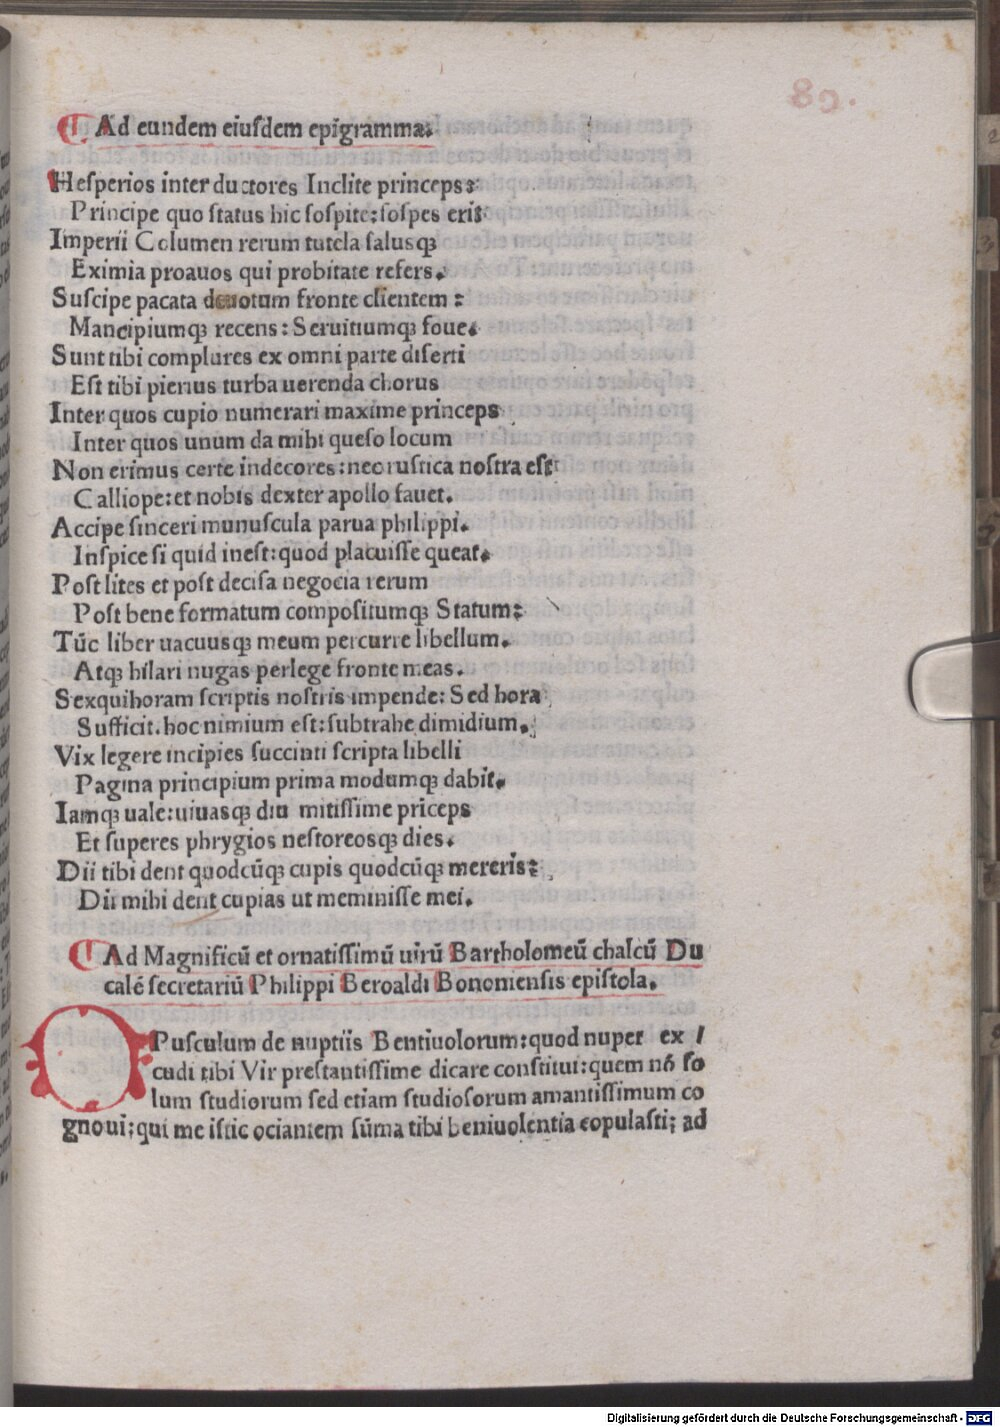 89.
Ad eundem eiusdem epigramma:
Hesperios inter ductores Inclite princeps:
Principe quo status hic sospite: sospes erit
Imperii Columen rerum tutela salusqꝫ
Eximia proauos qui probitate refers.
Suscipe pacata deuotum fronte clientem:
Mancipiumqꝫ recens: Seruitiumqꝫ foue.
Sunt tibi complures ex omni parte diserti
Est tibi pierius turba uerenda chorus
Inter quos cupio numerari maxime princeps
Inter quos unum da mihi queso locum
Non erimus certe indecores: nec rustica nostra est
Calliope: et nobis dexter apollo fauet.
Accipe sinceri munuscula parua philippi.
Inspice si quid inest: quod placuisse queat.
Post lites et post decisa negocia rerum
Post bene formatum compositumqꝫ Statum:
Tūc liber uacuusqꝫ meum percurre libellum.
Atqꝫ hilari nugas perlege fronte meas.
Sexquihoram scriptis nostris impende: Sed hora
Sufficit. hoc nimium est: subtrahe dimidium.
Vix legere incipies succinti scripta libelli
Pagina principium prima modumqꝫ dabit.
Iamqꝫ uale: uiuasqꝫ diu mitissime priceps
Et superes phrygios nestoreosqꝫ dies.
Dii tibi dent quodcūqꝫ cupis quodcūqꝫ mereris:
Dii mihi dent cupias ut meminisse mei.
Ad Magnificū et ornatissimū uirū Bartholomeū chalcū Du
calē secretariū Philippi Beroaldi Bononiensis epistola.
OPusculum de nuptiis Bentiuolorum: quod nuper ex /
cudi tibi Vir prestantissime dicare constitui: quem nō so
lum studiorum sed etiam studiosorum amantissimum co
gnoui; qui me istic ociantem sūma tibi beniuolentia copulasti; ad
Digitalisierung gefördert durch die Deutsche Forschungsgemeinschaft - DFG